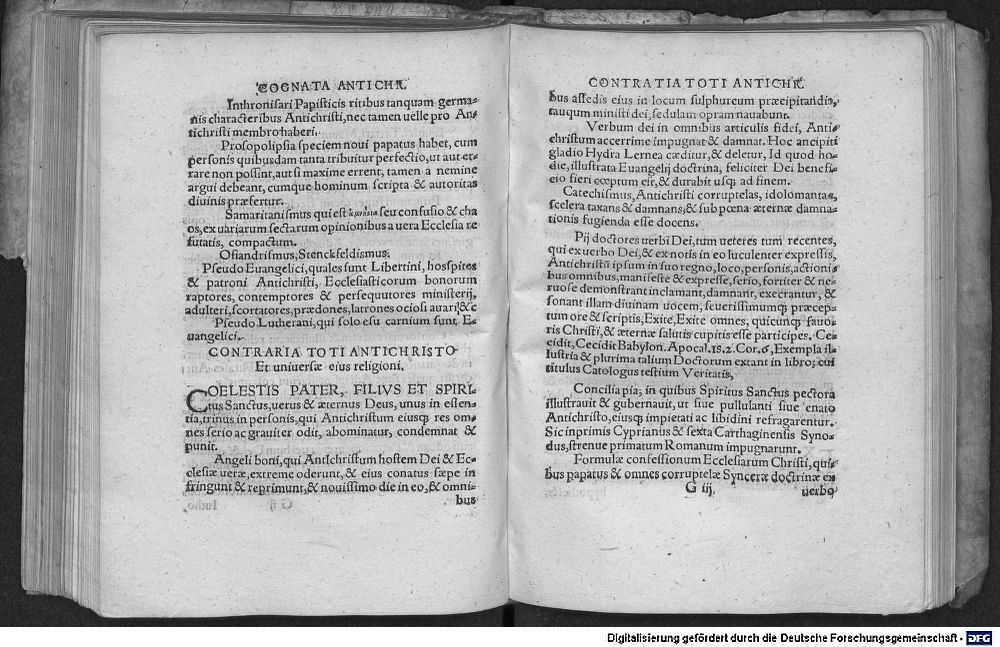 COGNATA ANTICHR.
Inthronisari Papisticis ritibus tanquam germa-
nis characteribus Antichristi, nec tamen uelle pro An-
tichristi membro haberi.
Prosopolipsia speciem noui papatus habet, cum
personis quibusdam tanta tribuitur perfectio, ut aut er-
rare non possint, aut si maxime errent, tamen a nemine
argui debeant, cumque hominum scripta & autoritas
diuinis præfertur.
Samaritanismus qui est seu confusio & cha
os, ex uariarum sectarum opinionibus a uera Ecclesia re
futatis, compactum.
Osiandrismus, Stenckfeldismus.
Pseudo Euangelici, quales sunt Libertini, hospites
& patroni Antichristi, Ecclesiasticorum bonorum
raptores, contemptores & persequutores ministerij,
adulteri, scortatores, prædones, latrones ociosi auari, &c
Pseudo Lutherani, qui solo esu carnium sunt E-
uangelici.
CONTRARIA TOTI ANTICHRISTO
Et uniuersæ eius religioni.
COELESTIS PATER, FILIVS ET SPIRI-
tus Sanctus, uerus & æternus Deus, unus in essen-
tia, trinus in personis, qui Antichristum eiusq; res om-
nes serio ac grauiter odit, abominatur, condemnat &
punit.
Angeli boni, qui Antichristum hostem Dei & Ec-
clesiæ ueræ, extreme oderunt, & eius conatus sæpe in
fringunt & reprimunt, & nouissimo die in eo, & omni-
bus
CONTRATIA TOTI ANTICHR.
bus assedis eius in locum sulphureum præcipitandis,
tauqum ministi dei, sedulam opram nauabunt.
Verbum dei in omnibus articulis fidei, Anti-
christum accerrime impugnat & damnat. Hoc ancipiti
gladio Hydra Lernea cæditur, & deletur, Id quod ho-
die, illustrata Euangelij doctrina, feliciter Dei benefi-
cio fieri cœptum est, & durabit usq; ad finem.
Catechismus, Antichristi corruptelas, idolomanias,
scelera taxans & damnans, & sub pœna æternæ damna-
tionis fugienda esse docens.
Pij doctores uerbi Dei, tum ueteres tum recentes,
qui ex uerbo Dei, & ex notis in eo luculenter expressis,
Antichristū ipsum in suo regno, loco, personis, actioni-
bus omnibus, manifeste & expresse, serio, fortiter & ner-
uose demonstrant inclamant, damnant, execrantur, &
sonant illam diuinam uocem, seuerissimumq; præcep-
tum ore & scriptis, Exite, Exite omnes, quicunq; fauo-
ris Christi, & æternæ salutis cupitis esse participes. Ce-
cidit, Cecidit Babylon. Apocal. 18. 2. Cor. 6, Exempla il-
lustria & plurima talium Doctorum extant in libro, cui
titulus Catologus testium Veritatis,
Concilia pia, in quibus Spiritus Sanctus pectora
illustrauit & gubernauit, ut siue pullulanti siue enato
Antichristo, eiusq; impietati ac libidini refragarentur.
Sic inprimis Cyprianus & sexta Carthaginensis Syno-
dus, strenue primatum Romanum impugnarunt.
Formulæ confessionum Ecclesiarum Christi, qui-
bus papatus & omnes corruptelæ Synceræ doctrinæ ex
G iij, uerbo
Digitalisierung gefördert durch die Deutsche Forschungsgemeinschaft - DFG